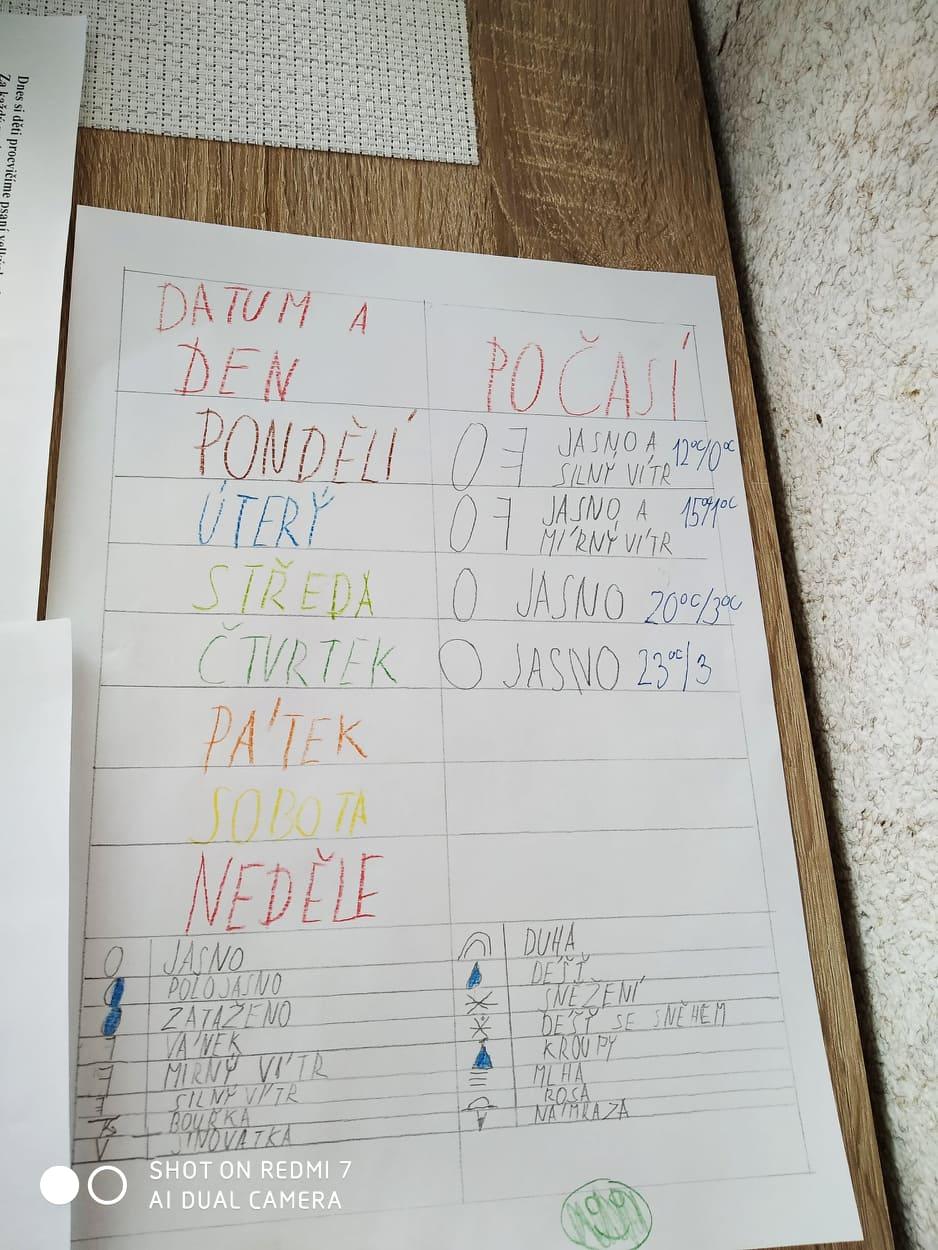 Dnes si děti procvičíme psaní
DATUM A
DEN
POČASÍ
PONDĚLÍ
JASNO A
SILNÝ VÍTR
12°C/0°C
ÚTERÝ
JASNO A
MÍRNÝ VÍTR
15°/1°C
STŘEDA
JASNO 20°C/3°C
ČTVRTEK
JASNO 23°C/3
PÁTEK
SOBOTA
NEDĚLE
JASNO
POLOJASNO
ZATAŽENO
VÁNEK
MÍRNÝ VÍTR
SILNÝ VÍTR
BOUŘKA
JÍNOVATKA
DUHA
DÉŠŤ
SNĚŽENÍ
DÉŠŤ SE SNĚHEM
KROUPY
MLHA
ROSA
NÁMRAZA
SHOT ON REDMI 7
AI DUAL CAMERA